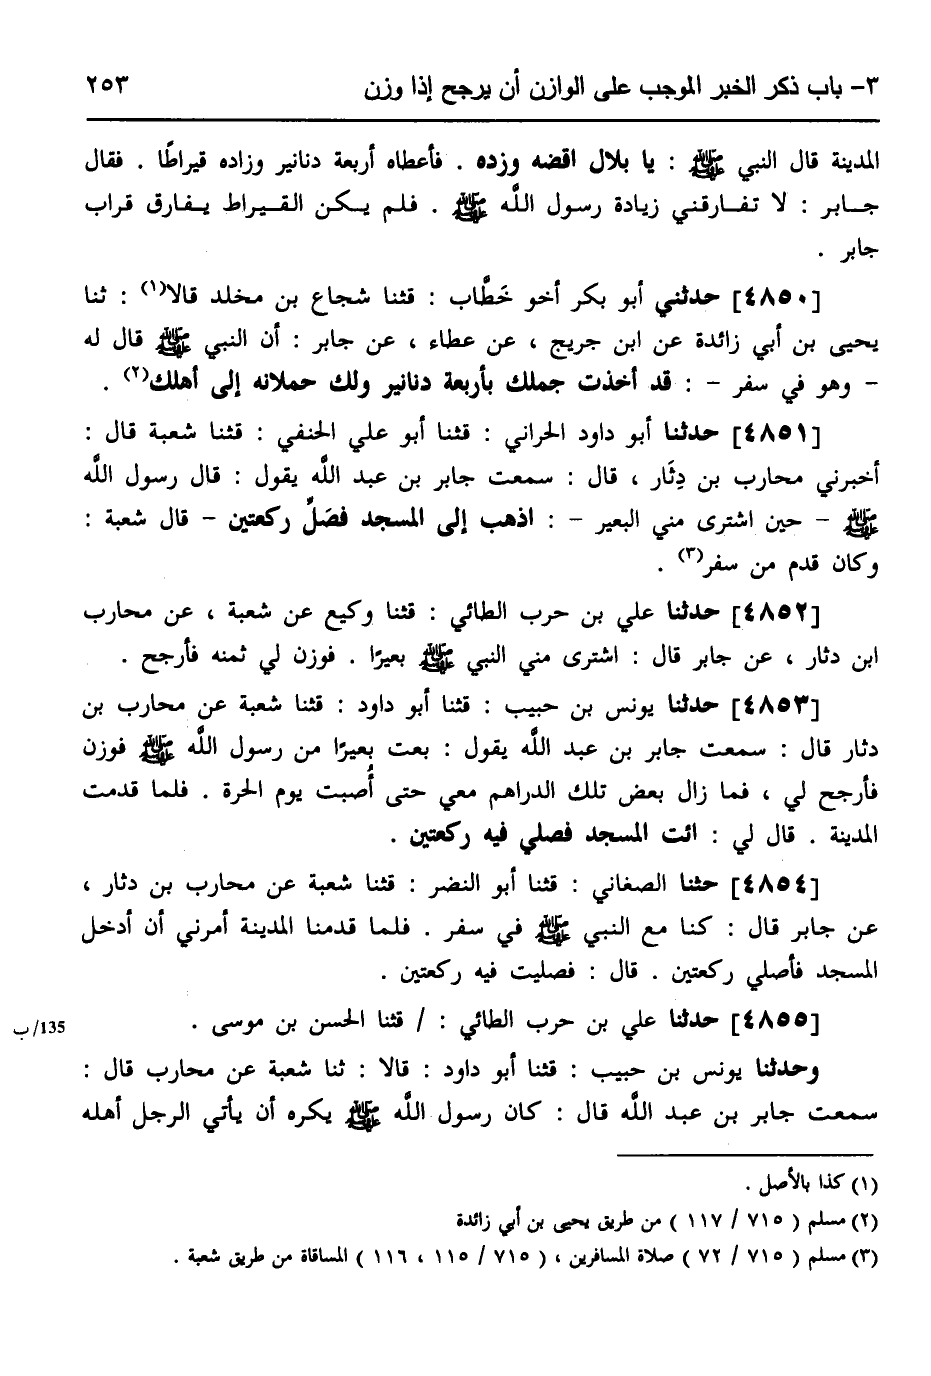 ٣- باب ذكر الخبر الموجب على الوازن أن يرجح إذا وزن ٢٥٣
المدينة قال النبي ﷺ : يا بلال اقضه وزده . فأعطاه أربعة دنانير وزاده قيراطًا . فقال
جـابر : لا تفـارقني زيادة رسول اللَّه ﷺ . فلم يـكن القـيراط يـفارق قراب
جابر .
[٤٨٥٠] حدثني أبو بكر أخو خَطَّاب : قثنا شجاع بن مخلد قالا(١) : ثنا
يحيى بن أبي زائدة عن ابن جريج ، عن عطاء ، عن جابر : أن النبي ﷺ قال له
- وهو في سفر - : قد أخذت جملك بأربعة دنانير ولك حملانه إلى أهلك(٢) .
[٤٨٥١] حدثنا أبو داود الحراني : قثنا أبو علي الحنفي : قثنا شعبة قال :
أخبرني محارب بن دِثَار ، قال : سمعت جابر بن عبد اللَّه يقول : قال رسول اللَّه
ﷺ - حين اشترى مني البعير - : اذهب إلى المسجد فصَلِّ ركعتين - قال شعبة :
وكان قدم من سفر(٣) .
[٤٨٥٢] حدثنا علي بن حرب الطائي : قثنا وكيع عن شعبة ، عن محارب
ابن دثار ، عن جابر قال : اشترى مني النبي ﷺ بعيرًا . فوزن لي ثمنه فأرجح .
[٤٨٥٣] حدثنا يونس بن حبيب : قثنا أبو داود : قثنا شعبة عن محارب بن
دثار قال : سمعت جابر بن عبد اللَّه يقول : بعت بعيرًا من رسول اللَّه ﷺ فوزن
فأرجح لي ، فما زال بعض تلك الدراهم معي حتى أُصبت يوم الحرة . فلما قدمت
المدينة . قال لي : ائت المسجد فصلي فيه ركعتين .
[٤٨٥٤] حثنا الصغاني : قثنا أبو النضر : قثنا شعبة عن محارب بن دثار ،
عن جابر قال : كنا مع النبي ﷺ في سفر . فلما قدمنا المدينة أمرني أن أدخل
المسجد فأصلي ركعتين . قال : فصليت فيه ركعتين .
[٤٨٥٥] حدثنا علي بن حرب الطائي : / قثنا الحسن بن موسى . 135/ب
وحدثنا يونس بن حبيب : قثنا أبو داود : قالا : ثنا شعبة عن محارب قال :
سمعت جابر بن عبد اللَّه قال : كان رسول اللَّه ﷺ يكره أن يأتي الرجل أهله
(١) كذا بالأصل .
(٢) مسلم ( ٧١٥ / ١١٧ ) من طريق يحيى بن أبي زائدة
(٣) مسلم ( ٧١٥ / ٧٢ ) صلاة المسافرين ، ( ٧١٥ / ١١٥ ، ١١٦ ) المساقاة من طريق شعبة .